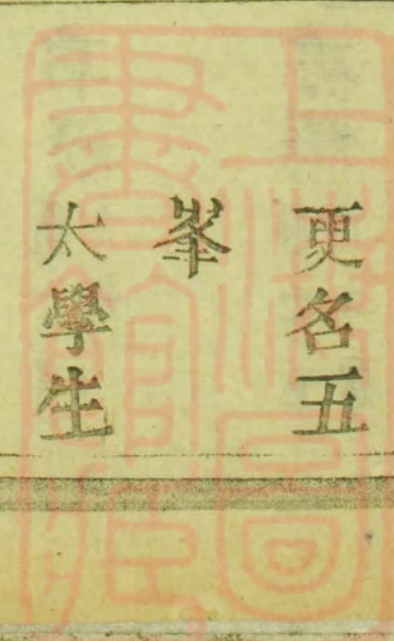 更名五
峯
太學生